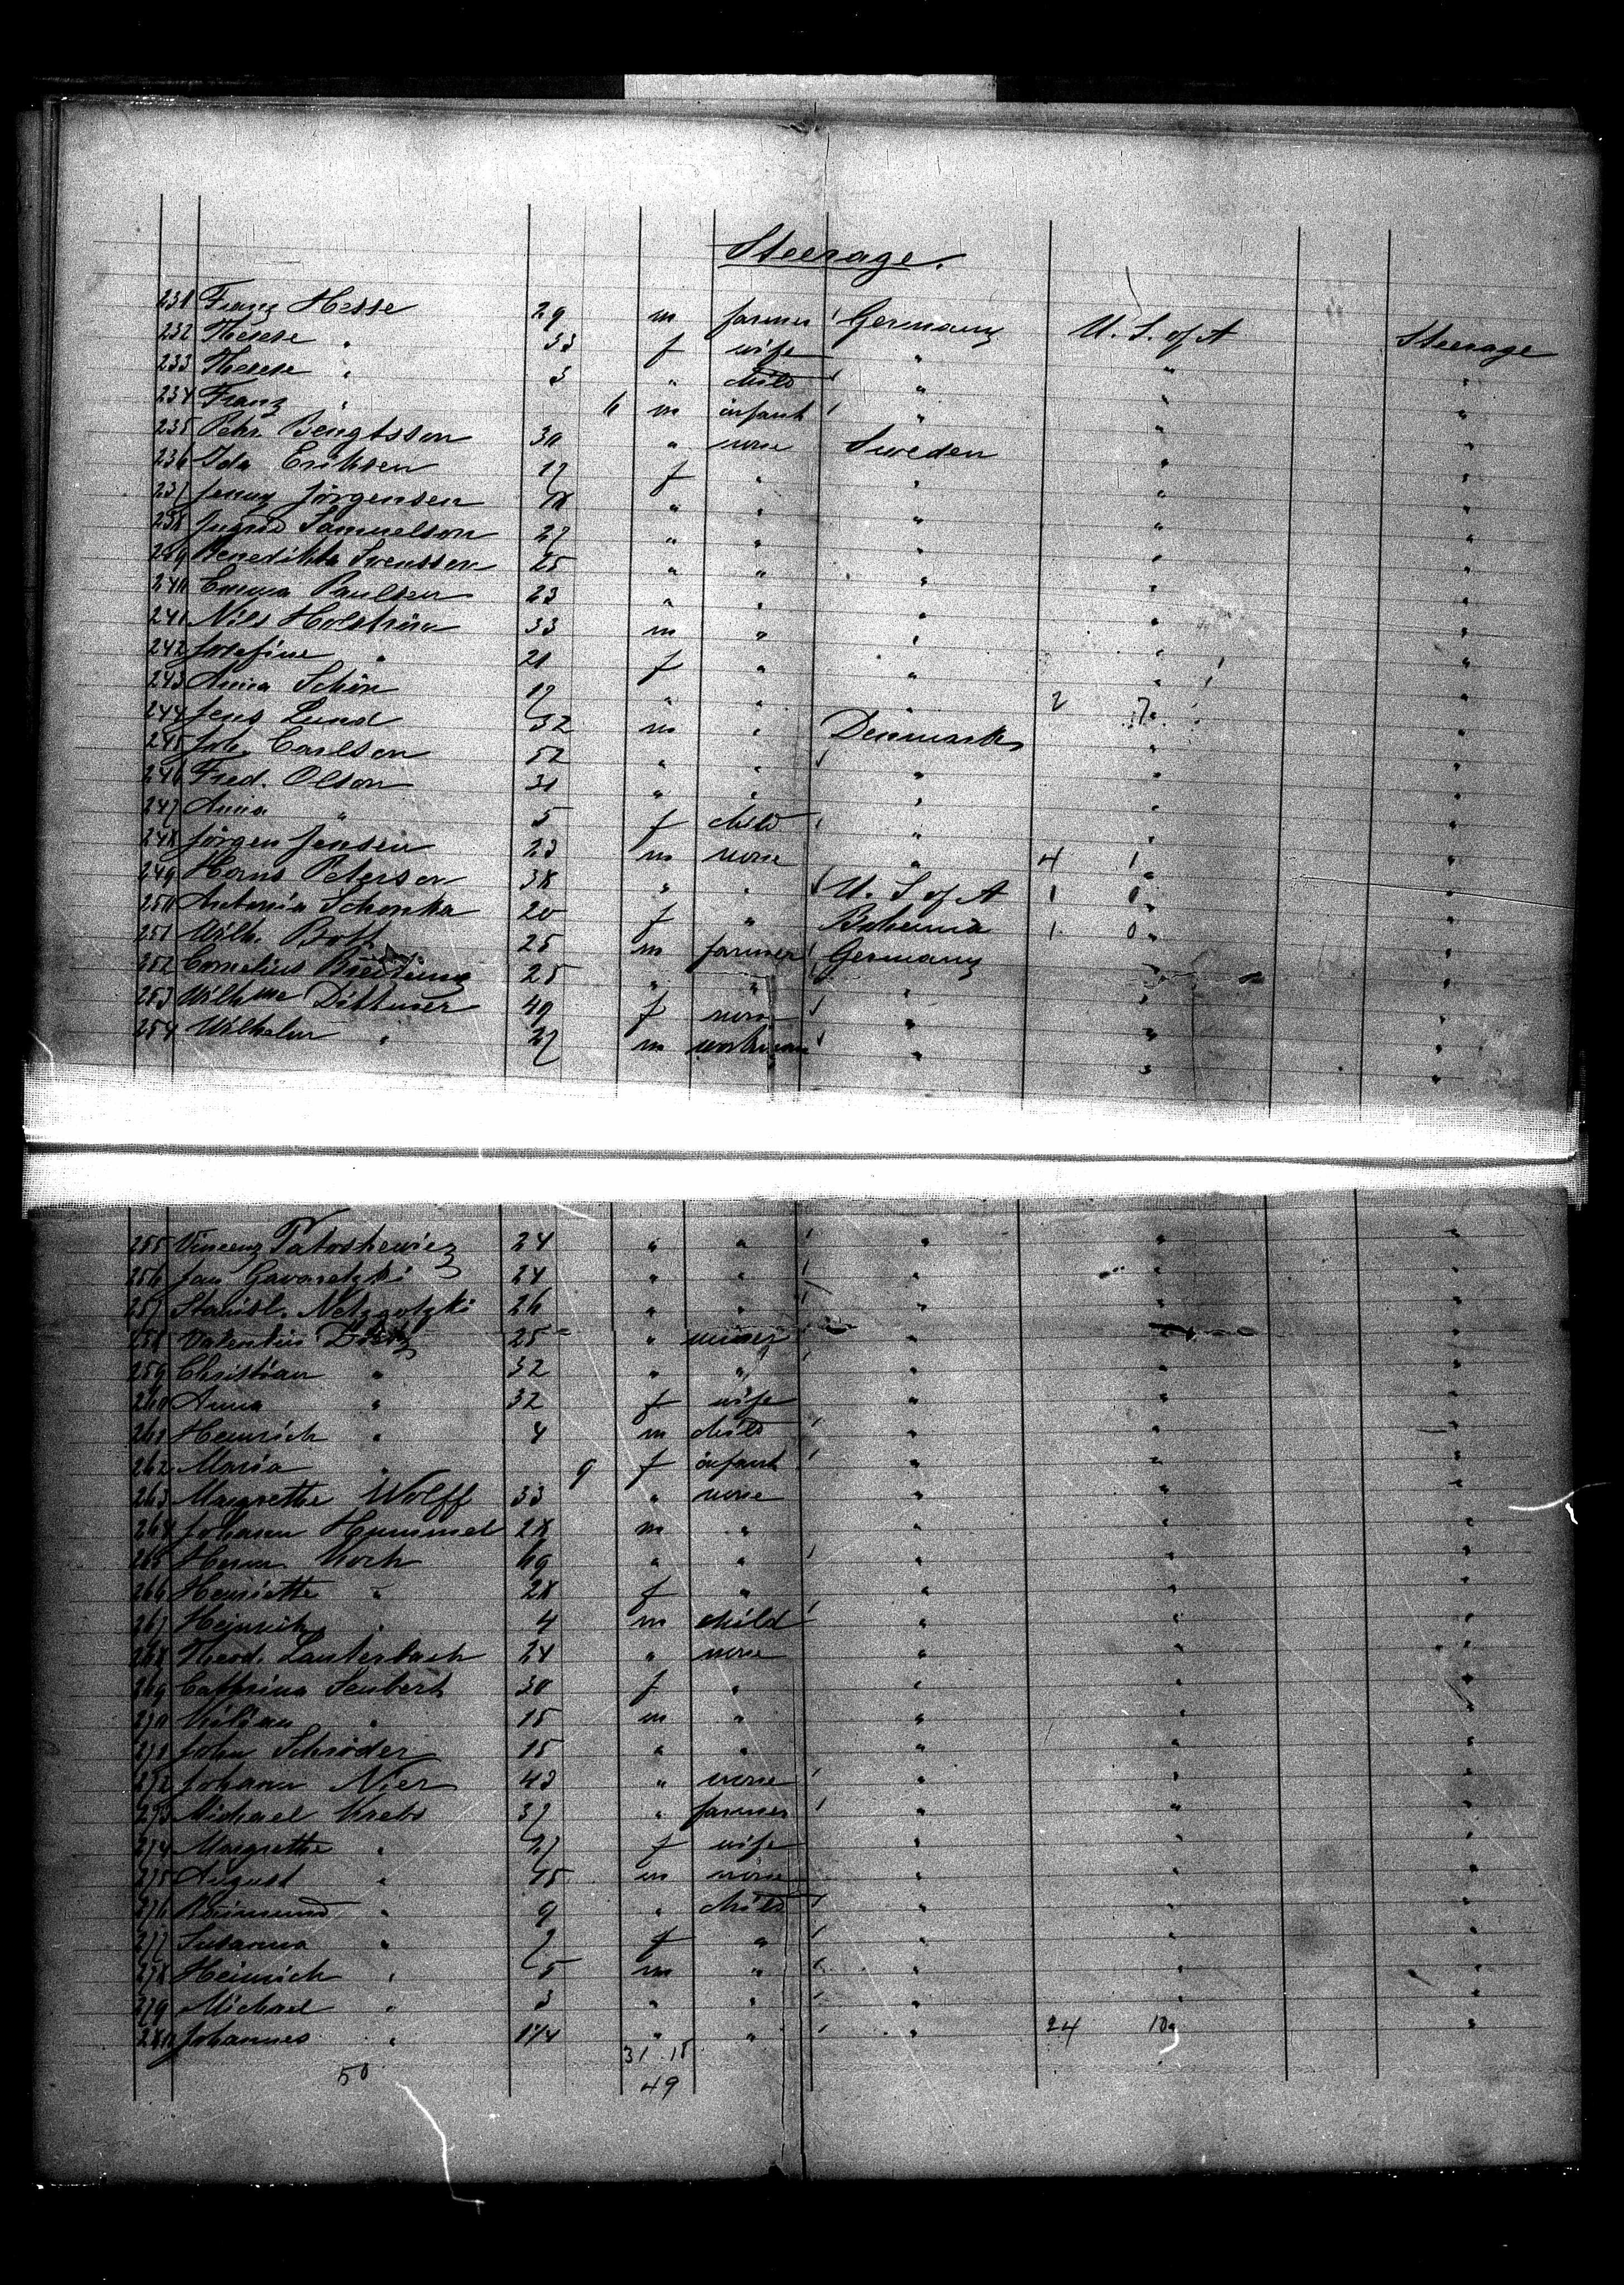 Steerage.
231 Franz Hesse 29 m farmer Germany U. S. of A Steerage
232 Therese " 33 f wife " " "
233 Therese " 3 " child " " "
234 Franz " 6 m infant " " "
235 Pehr Bengtsson 30 " none Sweden " "
236 Ida Eriksen 17 f " " " "
237 Jenny Jörgensen 18 " " " " "
238 Ingrid Samuelson 27 " " " " "
239 Benedikta Svensson 25 " " " " "
240 Emma Paulsen 23 " " " " "
241 Nils Holström 33 m " " " "
242 Josefine " 21 f " " " "
243 Anna Schön 17 " " " 2 7 " "
244 Jens Lund 32 m " Denmark " "
245 Joh. Carlson 52 " " " "
246 Fred. Olson 31 " " " " "
247 Anna " 5 f child " " "
248 Jörgen Jensen 23 m none " 4 1 " "
249 Hans Peterson 38 " " U. S of A 1 0 " "
250 Antonia Schonka 20 f " Bohemia 1 0 " "
251 Wilh. Bott 25 m farmer Germany "
252 Cornelius 25 " " " " "
253 Wilhme Dittmer 49 f none " " "
254 Wilhelm " 27 m workman " " "
255 Vincenz Tatoshewicz 24 " " " " "
256 Jan Gavaretzki 24 " " " " "
257 Stanisl. 26 " " " " "
258 Valentin 25 " miner " "
259 Christian " 32 " " " " "
260 Anna " 32 f wife " " "
261 Heinrich " 4 m child " " "
262 Maria " 9 f infant " " "
263 Margrethe Wolff 33 " none " " "
264 Johann Hummel 28 m " " " "
265 Herm Koch 69 " " " " "
266 Henriette " 28 f " " " "
267 Heinrich " 4 m child " " "
268 Theod. Lauterbach 24 " none " " "
269 Catharina Seubert 30 f " " " "
270 Kilian " 15 m " " " "
271 John Schröder 15 " " " " "
272 Johann Nier 43 " none " " "
273 Michael Krebs 37 " farmer " " "
274 Margrethe " 27 f wife " " "
275 August " 15 m none " " "
276 Raimund " 9 " child " " "
277 Susanna " 7 f " " " "
278 Heinrich " 5 m " " " "
279 Michael " 3 " " " " "
280 Johannes " 1 1/4 " " " 24 10 " "
31 18
50 49